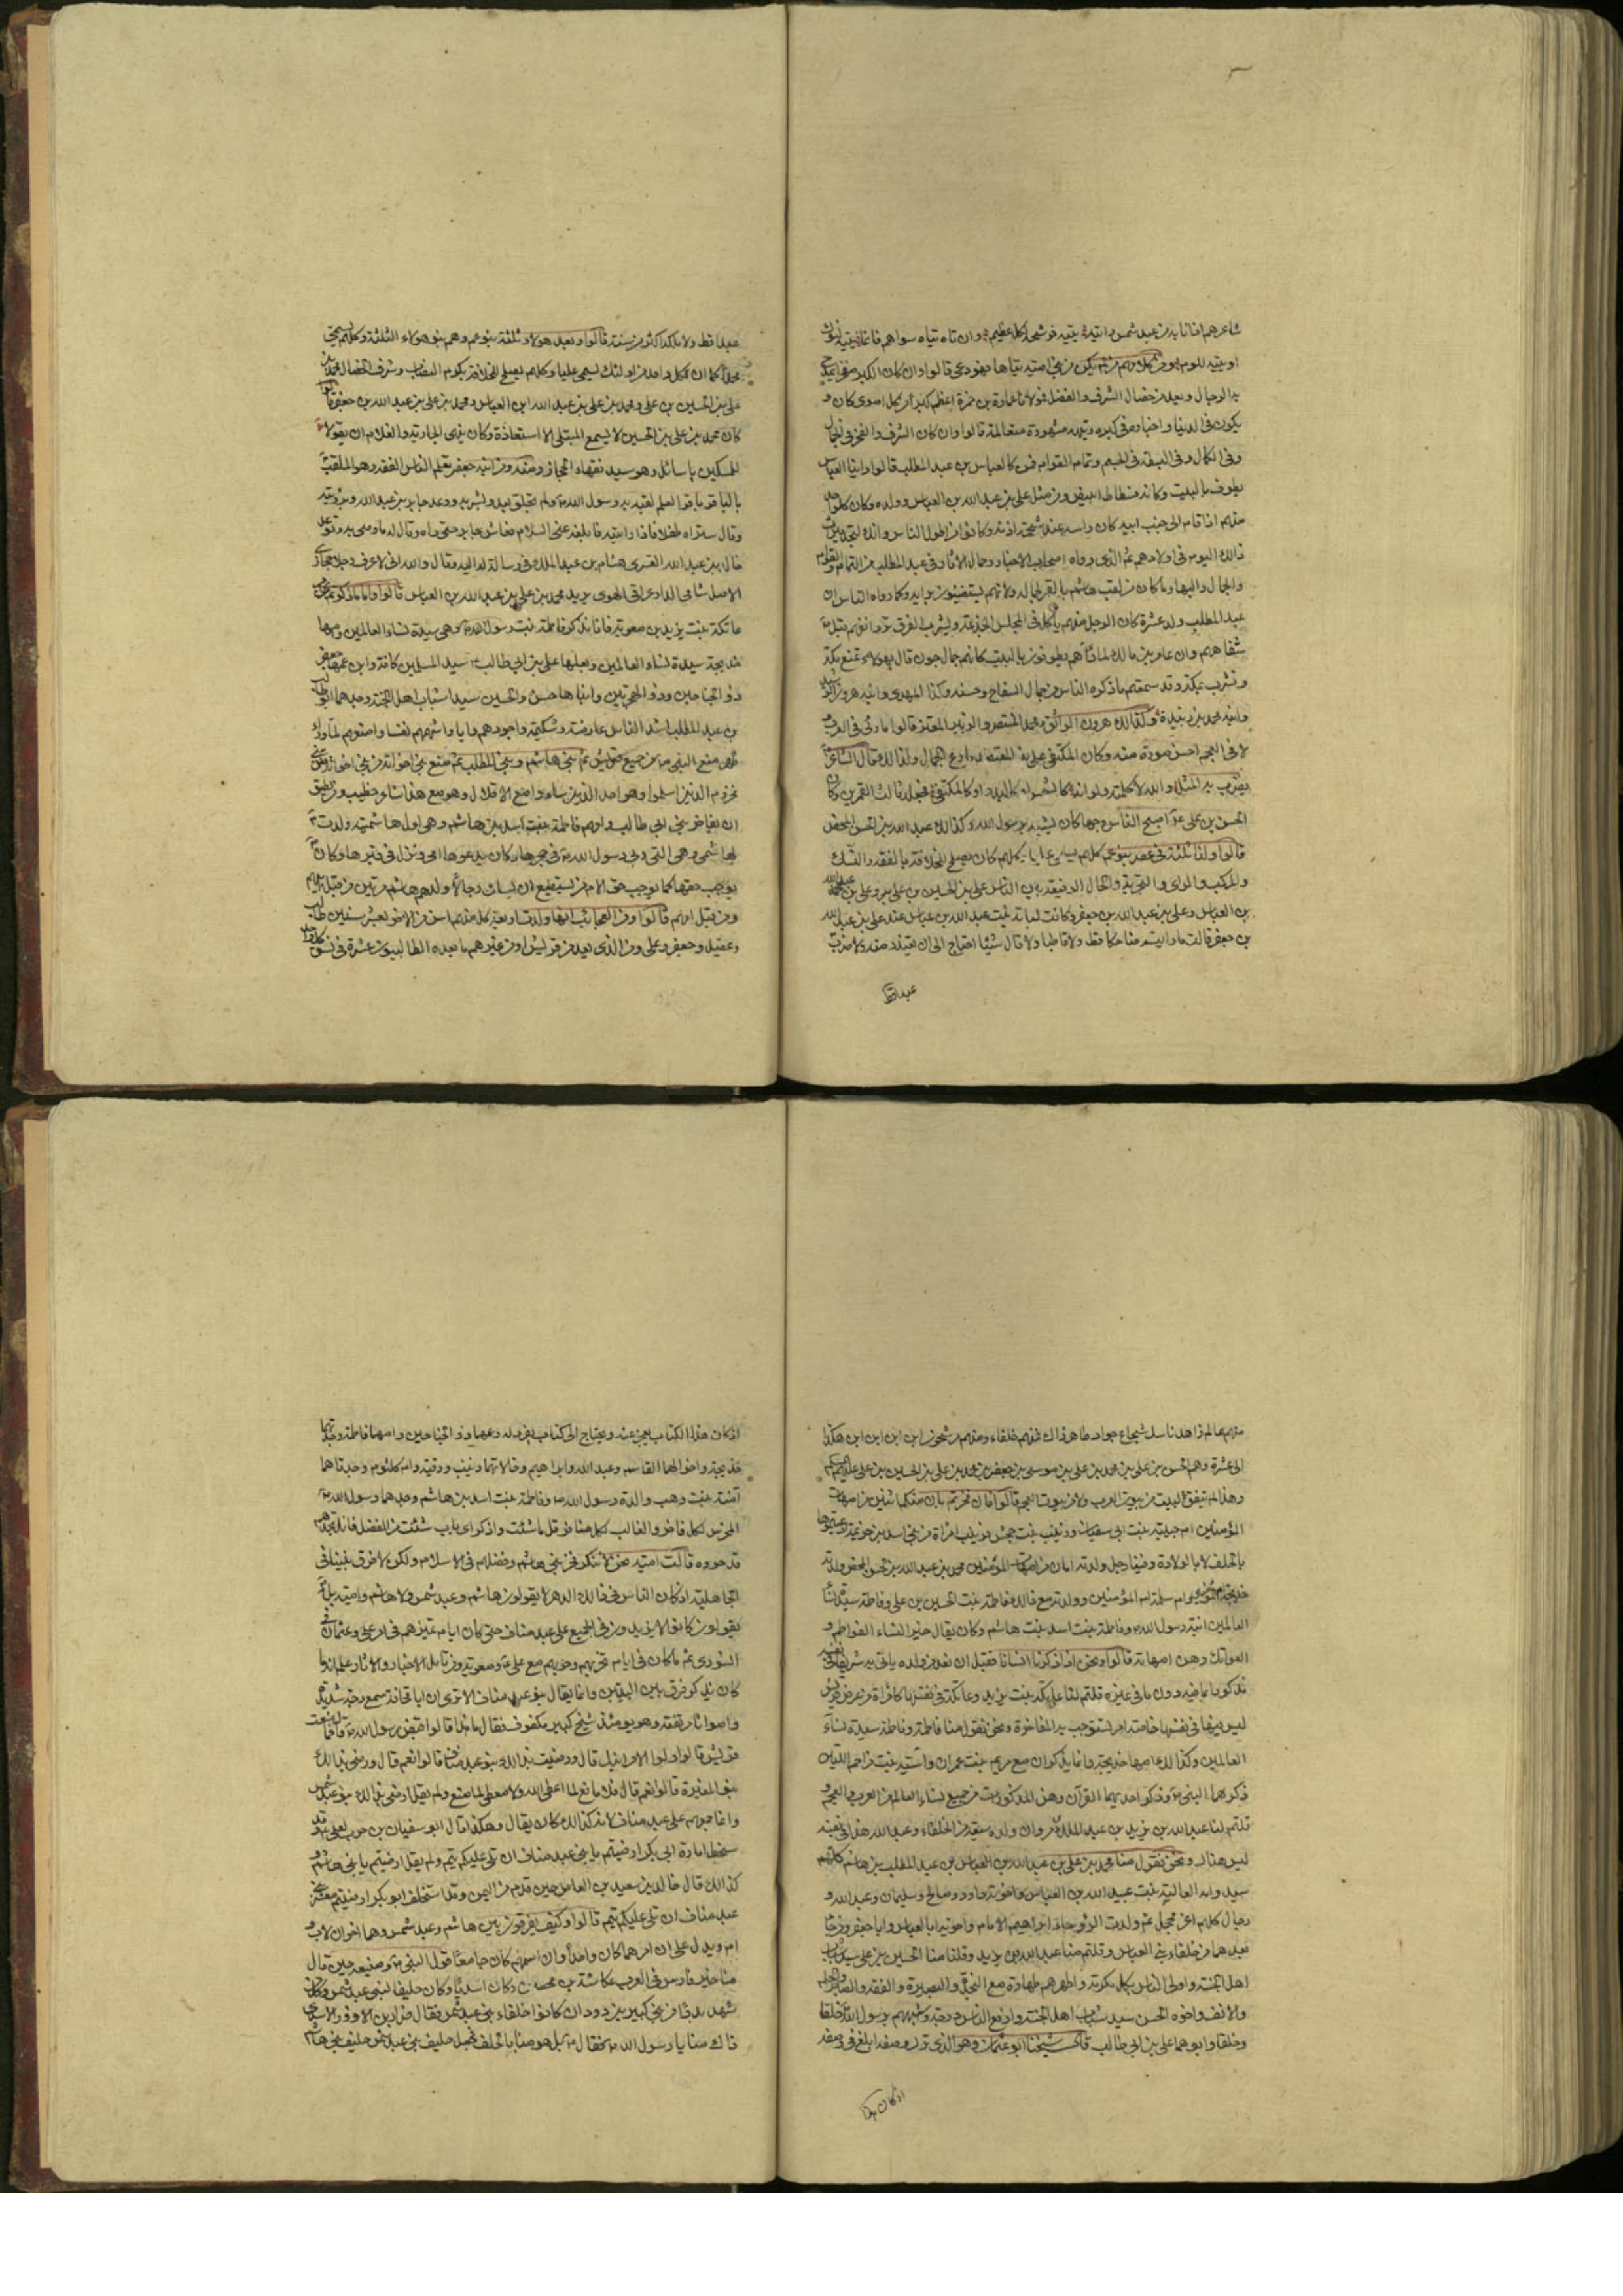 شاعرهم انا اناس من عبد شمس وان تاه تياه سواهم فانما
او يتيه للوم قالوا وان كان الكبر
بالرجال ويعد من خصال الشرف والفضل فمولانا عمارة بن حمزة اعظم كبرا من كل اموى كان و
يكون فى الدنيا واخباره فى كبره وتيهه مشهورة متعالمة قالوا وان كان الشرف والفخر فى الجمال
وفى الكمال وفى البسطة فى الجسم وتمام القوام فمن كالعباس بن عبد المطلب قالوا راينا العباس
يطوف بالبيت وكانه فسطاط ابيض ومن مثل على بن عبد الله بن العباس وولده وكان كل واحد
منهم اذا قام الى جنب ابيه كان راسه عند شحمة اذنه وكانوا من اطول الناس وانك لتجد ميراث
ذلك اليوم فى اولادهم ثم الذى رواه اصحاب الاخبار وحمال الاثار فى عبد المطلب من التمام والقوام
والجمال والبهاء وما كان من لقب هاشم بالقمر لجماله ولانهم يستضيئون برايه وكما رواه الناس ان
عبد المطلب ولد عشرة كان الرجل منهم ياكل فى المجلس الجذعة ويشرب الفرق ترد انفهم قبل
شفاههم وان عامر بن مالك لما رآهم يطوفون بالبيت كانهم جمال جون قال بهولاء تمنع مكة
وتشرف مكة وقد سمعتم ما ذكره الناس من جمال السفاح وحسنه وكذا المهدى وابنه هرون الرشيد
وابنه محمد بن زبيدة وكذلك هرون الواثق ومحمد المنتصر والزبير المعتز قالوا ما رئى فى العرب و
لا فى العجم احسن صورة منه وكان المكتفى على بن المعتضد بارع الجمال ولذلك قال الشاعر
يضرب به المثل والله لا كلمته ولو انه كالشمس او كالبدر او كالمكتفى فجعله ثالث القمرين وكان
الحسن بن على اصبح الناس وجها كان يشبه برسول الله وكذلك عبد الله بن الحسن المحض
قالوا ولنا ثلثة فى عصر بنو عم كلهم يسمى عليا وكلهم كان يصلح للخلافة بالفقه والنسك
والمركب والراى والتجربة والحال الرفيعة بين الناس على بن الحسين بن على وعلى بن عبد الله
بن العباس وعلى بن عبد الله بن جعفر وكانت لبابة بنت عبد الله بن عباس عند على بن عبد الله
بن جعفر قالت ما رايته ضاحكا قط ولا قاطبا ولا قال شيئا احتاج الى ان يعتذر منه ولا ضرب
عبدا قط
عبدا قط ولا ملكه اكثر من سنة قالوا وبعد هولاء ثلثة بنو عم وهم بنو هولاء الثلثة وكلهم يسمى
محمدا كما ان كل واحد من اولئك يسمى عليا وكلهم يصلح للخلافة بكرم النصاب وشرف الخصال محمد بن
على بن الحسين بن على ومحمد بن على بن عبد الله ابن العباس ومحمد بن على بن عبد الله بن جعفر قالوا
كان محمد بن على بن الحسين لا يسمع المبتلى الاستعاذة وكان ينهى الجارية والغلام ان يقولا
للمسكين يا سائل وهو سيد فقهاء الحجاز ومنه ومن ابنه جعفر تعلم الناس الفقه وهو الملقب
بالباقر باقر العلم لقبه به رسول الله ولم يخلق بعد وبشر به ووعد جابر بن عبد الله برؤيته
وقال ستراه طفلا فاذا رايته فابلغه عنى السلام فعاش جابر حتى راه وقال له ما وصى به وتوعد
خالد بن عبد الله القسرى هشام بن عبد الملك فى رسالة له اليه وقال والله انى لاعرف رجلا حجازى
الاصل شامى الدار عراقى الهوى يريد محمد بن على بن عبد الله بن العباس قالوا واما ما ذكرتم من
عاتكة بنت يزيد بن معوية فانا نذكر فاطمة بنت رسول الله وهى سيدة نساء العالمين وامها
خديجة سيدة نساء العالمين وبعلها على بن ابى طالب سيد المسلمين كافة وابن عمها جعفر
ذو الجناحين وذو الهجرتين وابناها حسن والحسين سيدا شباب اهل الجنة وجدهما ابو طالب
بن عبد المطلب اشد الناس عارضة وشكيمة واجودهم رايا واشهمهم نفسا وامنعهم لما وراء
ظهره منع النبى من جميع قريش ثم بنى هاشم وبنى المطلب ثم منع بنى اخوانه من بنى اخواته من بنى
مخزوم الذين اسلموا وهو احد الذين سادوا مع الاقلال وهو مع هذا شاعر خطيب ومن يطيق
ان يفاخر بنى ابى طالب وامهم فاطمة بنت اسد بن هاشم وهى اول هاشمية ولدت
لهاشمى وهى التى ربى رسول الله فى حجرها وكان يدعوها امى ونزل فى قبرها وكان
يوجب حقها كما يوجب حق الام من يستطيع ان يسامى رجالا ولدهم هاشم مرتين من قبل ابيهم
ومن قبل امهم قالوا ومن العجائب انها ولدت اربعة كل منهم اسن من الاخر بعشر سنين طالب
وعقيل وجعفر وعلى ومن الذى يعد من قريش او من غيرهم ما يعده الطالبيون عشرة فى نسق كل واحد
منهم عالم زاهد ناسك شجاع جواد طاهر زاك فمنهم خلفاء ومنهم مرشحون ابن ابن ابن ابن هكذا
الى عشرة وهم الحسن بن على بن محمد بن على بن موسى بن جعفر بن محمد بن على بن الحسين بن على
وهذا لم يتفق لبيت من بيوت العرب ولا من بيوت العجم قالوا فان فخرتم بان منكم اثنتين من امهات
المؤمنين ام حبيبة بنت ابى سفيان وزينب بنت جحش فزينب امراة من بنى اسد بن خزيمة ادعيتموها
بالحلف لا بالولادة وفينا رجل ولدته امان من امهات المؤمنين محمد بن عبد الله بن الحسن المحض ولدته
خديجة ام المؤمنين وام سلمة ام المؤمنين وولدته مع ذلك فاطمة بنت الحسين بن على وفاطمة سيدة نساء
العالمين ابنة رسول الله وفاطمة بنت اسد بنت هاشم وكان يقال خير النساء الفواطم و
العواتك وهن امهاته قالوا ونحن اذا ذكرنا انسانا فقبل ان نعد من ولده ياتى به شريفا فى نفسه
مذكورا بما فيه دون ما فى غيره قلتم لنا عاتكة بنت يزيد وعاتكة فى نفسها كامراة من عرض قريش
ليس فيها فى نفسها خاصة امر تستوجب به المفاخرة ونحن نقول منا فاطمة وفاطمة سيدة نساء
العالمين وكذلك امها خديجة وانما يذكران مع مريم بنت عمران واسية بنت مزاحم اللتين
ذكرهما النبى وذكر احديهما القرآن وهن المذكورات من جميع نساء العالم من العرب والعجم و
قلتم لنا عبد الله بن يزيد بن عبد الملك بن مروان ولده سبعة من الخلفاء وعبد الله هذا فى نفسه
ليس هناك ونحن نقول منا محمد بن على بن عبد الله بن العباس بن عبد المطلب بن هاشم كلهم
سيد وامه العالية بنت عبيد الله بن العباس واخوته داود وصالح وسليمان وعبد الله و
رجال كلهم اغر محجل ثم ولدت الرؤساء ابراهيم الامام واخويه ابا العباس وابا جعفر ومن جاء
بعدهما من خلفاء بنى العباس وقلتم منا عبد الله بن يزيد وقلنا منا الحسين بن على سيد شباب
اهل الجنة واولى الناس بكل مكرمة واطهرهم طهارة مع النجدة والبصيرة والفقه والصبر والحلم
والانف واخوه الحسن سيد شباب اهل الجنة وارفع الناس درجة واشبههم برسول الله خلقا
وخلقا وابوهما على بن ابى طالب قال شيخنا ابو عثمان وهو الذى ترك وصفه ابلغ فى وصفه
اذ كان هذا
اذ كان هذا الكتاب يعجز عنه ويحتاج الى كتاب يفرد له وعمهما ذو الجناحين وامهما فاطمة وجدتهما
خديجة واخوالهما القاسم وعبد الله وابراهيم وخالاتهما زينب ورقية وام كلثوم وجدتاهما
آمنة بنت وهب والدة رسول الله وفاطمة بنت اسد بن هاشم وجدهما رسول الله
المخرس لكل فاخر والغالب لكل منافر قل ما شئت واذكر اى باب شئت من الفضل فانك تجدهم
قد حووه قالت امية نحن لا ننكر فخر بنى هاشم وفضلهم فى الاسلام ولكن لا فرق بيننا فى
الجاهلية اذ كان الناس فى ذلك الدهر لا يقولون هاشم وعبد شمس ولا هاشم وامية بل
يقولون كانوا لا يزيدون فى الجميع على عبد مناف حتى كان ايام تميزهم فى امر على وعثمان فى
الشورى ثم ما كان فى ايام تحزبهم وحربهم مع على ومعوية ومن تامل الاخبار والاثار علم انه ما
كان يذكر فرق بين البيتين وانما يقال بنو عبد مناف الا ترى ان ابا قحافة سمع رجة شديدة
واصواتا مرتفعة وهو يومئذ شيخ كبير مكفوف فقال ما هذا قالوا قبض رسول الله قال فما صنعت
قريش قالوا ولوا الامر ابنك قال ورضيت بذلك بنو عبد مناف قالوا نعم قال ورضى بذلك
بنو المغيرة قالوا نعم قال فلا مانع لما اعطى الله ولا معطى لما منع ولم يقل ارضى بذلك بنو عبد شمس
وانما جمعهم على عبد مناف لانه كذلك كان يقال وهكذا قال ابو سفيان بن حرب لعلى وقد
سخط امارة ابى بكر ارضيتم يا بنى عبد مناف ان تلى عليكم تيم ولم يقل ارضيتم يا بنى هاشم و
كذلك قال خالد بن سعيد بن العاص حين قدم من اليمن وقد استخلف ابو بكر ارضيتم معشر بنى
عبد مناف ان تلى عليكم تيم قالوا وكيف يفرقون بين هاشم وعبد شمس وهما اخوان لاب و
ام ويدل على ان امرهما كان واحدا وان اسمهم كان جامعا قول النبى وصنيعه حين قال
منا خير فارس فى العرب عكاشة بن محصن وكان اسديا وكان حليفا لبنى عبد شمس وكل من
شهد بدرا من بنى كبير بن دودان كانوا حلفاء بنى عبد شمس فقال ضرار بن الازور الاسدى
ذاك منا يا رسول الله فقال بل هو منا بالحلف فجعل حليف بنى عبد شمس حليف بنى هاشم